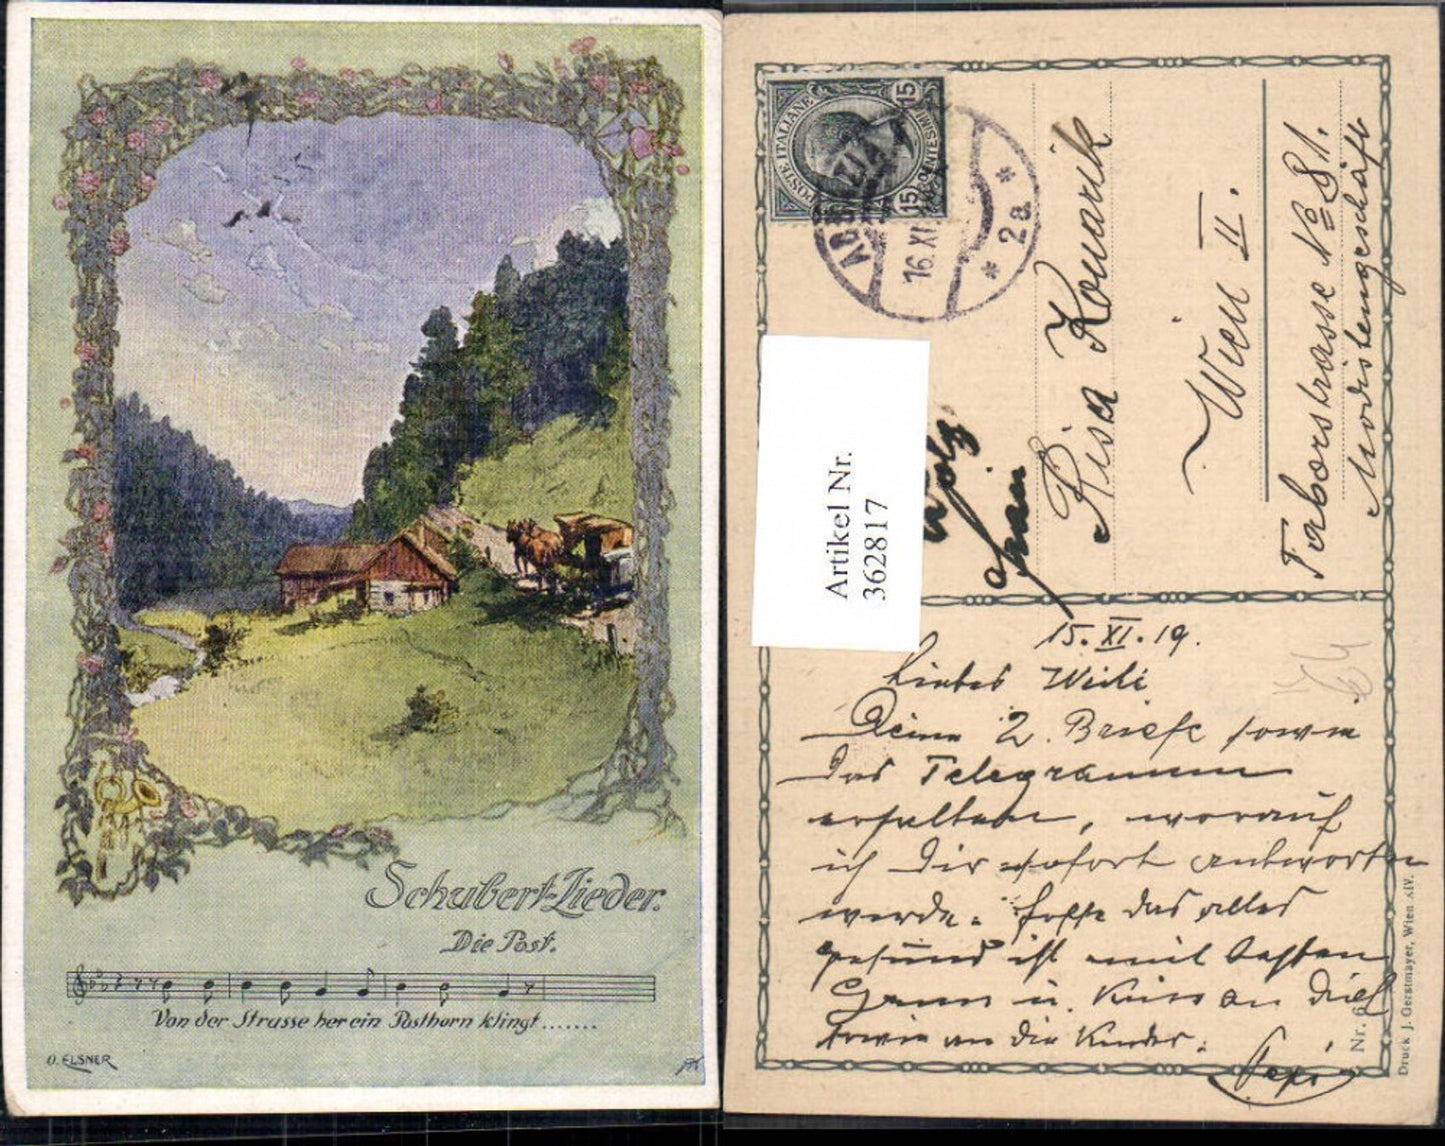 Schubert-Lieder.
Die Post.
Von der Strasse her ein Posthorn klingt.......
O. ELSNER
POSTE ITALIANE
15 CENTESIMI 15
16.XI
* 2a *
Artikel Nr.
362817
Risa Kouarik
Wien II.
Taborstrasse No 81.
Modistengeschäft
15. XI. 19.
Liebes Weibi
Deine 2. Briefe sowie
das Telegramm
erhalten, worauf
ich Dir sofort antworten
werde. Hoffe das alles
gesund ist mit besten
Gruss u. Kuss an Dich
sowie an die Kinder.
Pepi
Nr. 6
Druck J. Gerstmayer, Wien XIV.